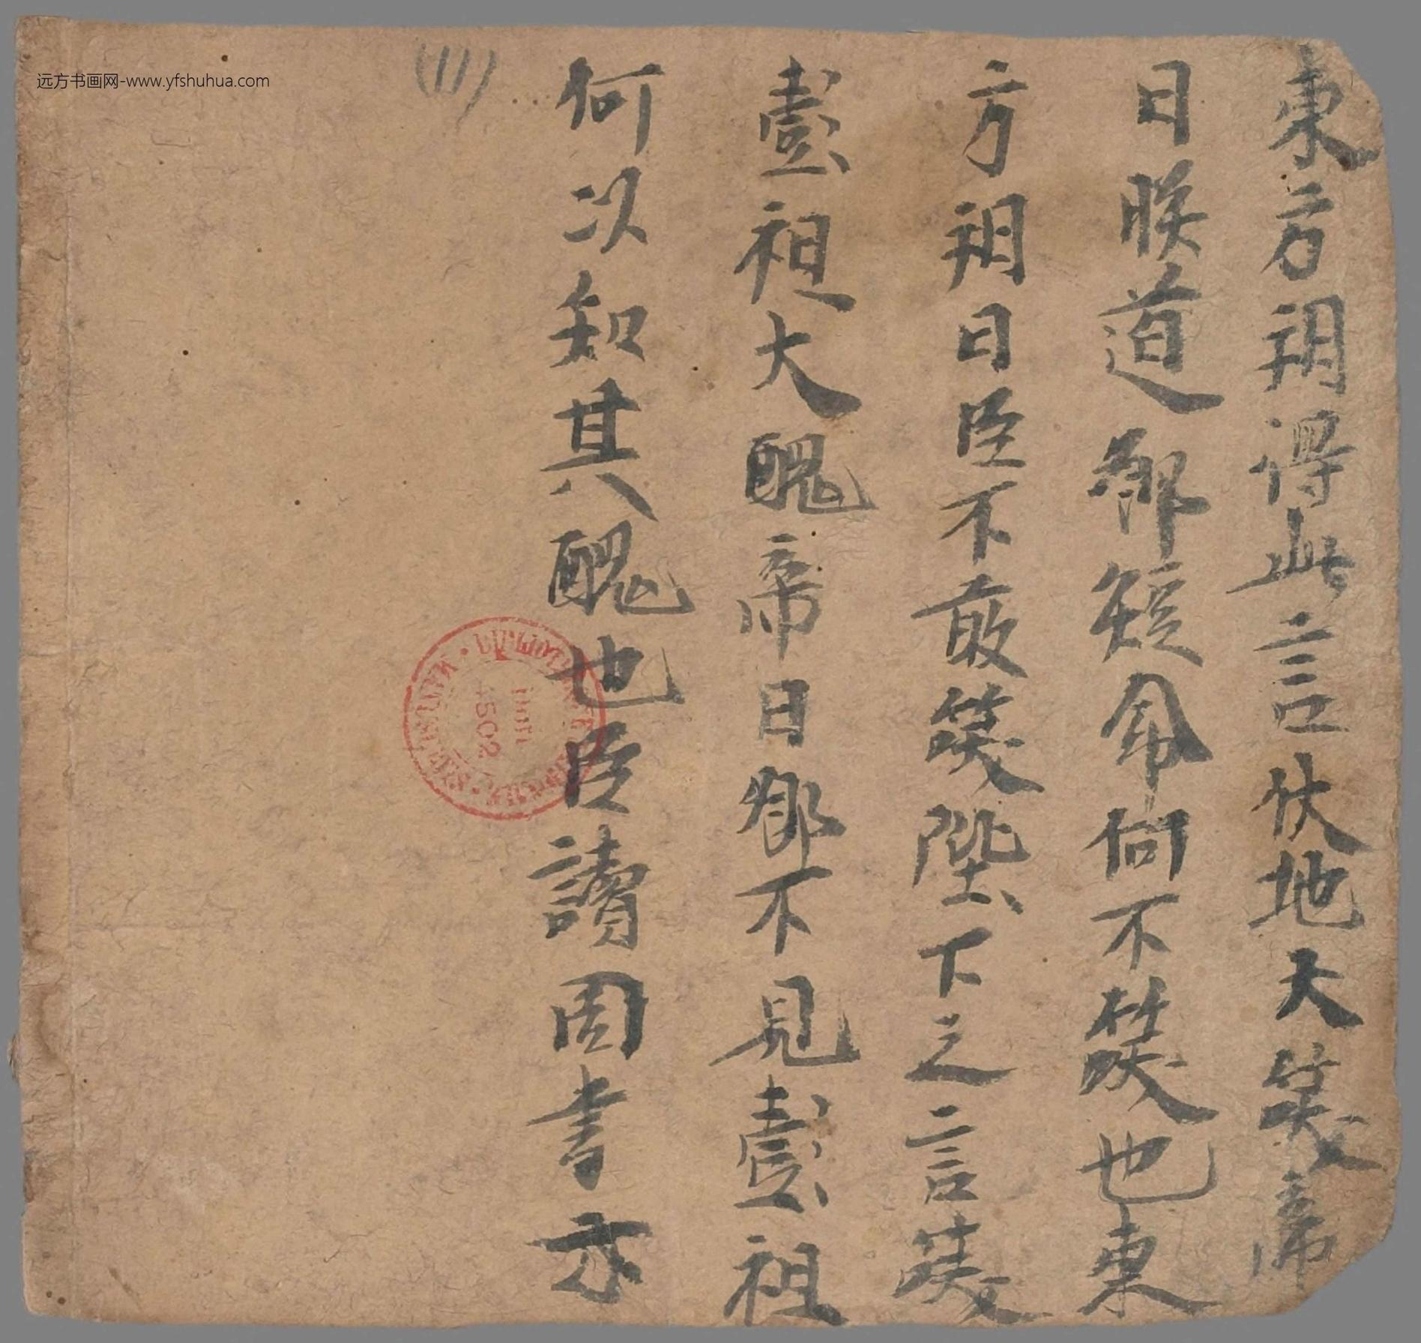 東方朔得此言伏地大笑帝
曰朕道卿短命何不笑也東
方朔曰臣不敢笑陛下之言笑
彭祖大醜帝曰卿不見彭祖
何以知其醜也臣讀周書亦
(11)
远方书画网-www.yfshuhua.com